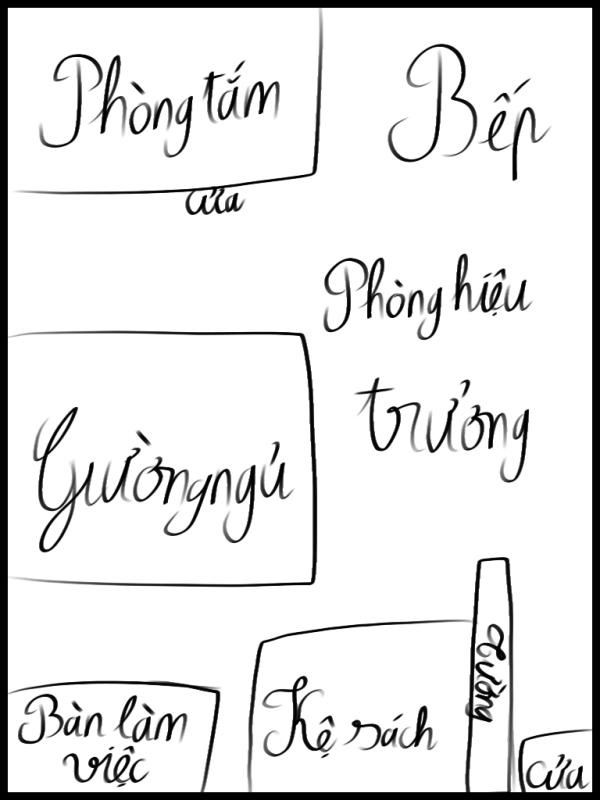 Phòng tắm
Bếp
cửa
Phòng hiệu
trưởng
Gường ngủ
tường
Bàn làm
việc
Kệ sách
cửa